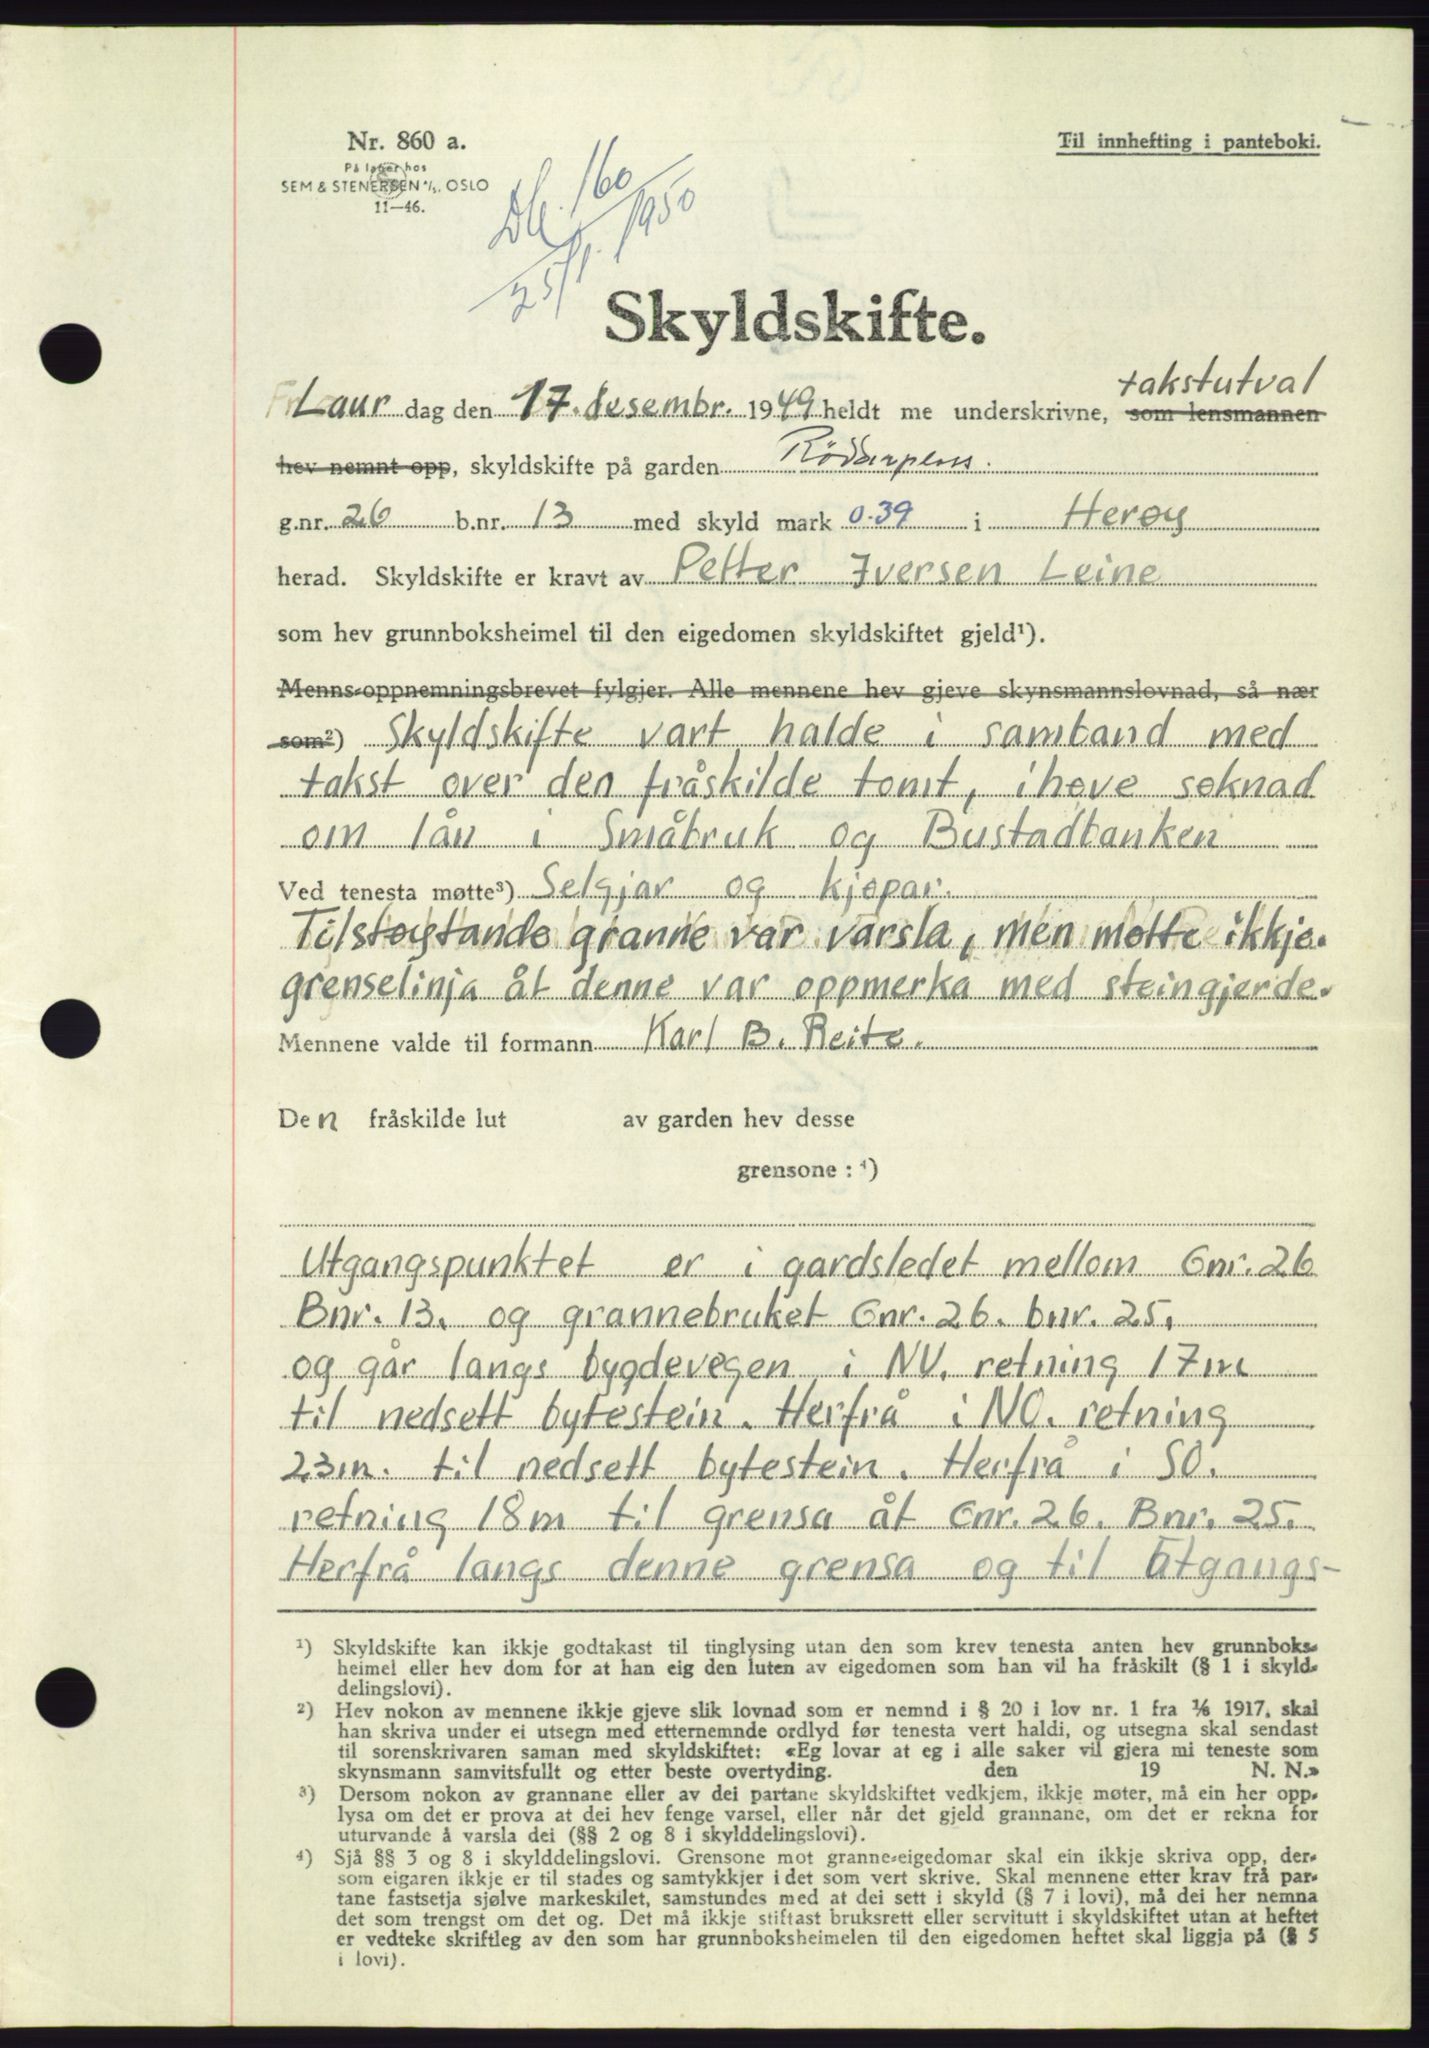 Nr. 860 a.
På lager hos
SEM & STENERSEN A/S. OSLO
11—46.
Til innhefting i panteboki.
Db. 160
25/1. 1950
Skyldskifte.
takstutval
Laur dag den 17. desembr. 1949 heldt me underskrivne, som lensmannen
hev nemnt opp, skyldskifte på garden
g.nr. 26 b.nr. 13 med skyld mark 0.39 i Herøy
herad. Skyldskifte er kravt av Petter Iversen Leine
som hev grunnboksheimel til den eigedomen skyldskiftet gjeld¹).
Menns-oppnemningsbrevet fylgjer. Alle mennene hev gjeve skynsmannslovnad, så nær
som²) Skyldskifte vart halde i samband med
takst over den fråskilde tomt, ihøve søknad
om lån i Småbruk og Bustadbanken
Ved tenesta møtte³) Selgjar og kjøpar.
Tilstøytande granne var varsla, men møtte ikkje.
grenselinja åt denne var oppmerka med steingjerde.
Mennene valde til formann Karl B. Reite.
Den fråskilde lut av garden hev desse
grensone : ⁴)
Utgangspunktet er i gardsledet mellom Gnr. 26
Bnr. 13. og grannebruket Gnr. 26. bnr. 25.
og går langs bygdevegen i NV. retning 17m
til nedsett bytestein. Herfrå i NO. retning
23m. til nedsett bytestein. Herfrå i SO.
retning 18m til grensa åt Gnr. 26. Bnr. 25.
Herfrå langs denne grensa og til Utgangs-
¹) Skyldskifte kan ikkje godtakast til tinglysing utan den som krev tenesta anten hev grunnboks-
heimel eller hev dom for at han eig den luten av eigedomen som han vil ha fråskilt (§ 1 i skyld-
delingslovi).
²) Hev nokon av mennene ikkje gjeve slik lovnad som er nemnd i § 20 i lov nr. 1 fra 1/6 1917, skal
han skriva under ei utsegn med etternemnde ordlyd før tenesta vert haldi, og utsegna skal sendast
til sorenskrivaren saman med skyldskiftet: «Eg lovar at eg i alle saker vil gjera mi teneste som
skynsmann samvitsfullt og etter beste overtyding. den 19 N. N.»
³) Dersom nokon av grannane eller av dei partane skyldskiftet vedkjem, ikkje møter, må ein her opp-
lysa om det er prova at dei hev fenge varsel, eller når det gjeld grannane, om det er rekna for
uturvande å varsla dei (§§ 2 og 8 i skylddelingslovi).
⁴) Sjå §§ 3 og 8 i skylddelingslovi. Grensone mot granne-eigedomar skal ein ikkje skriva opp, der-
som eigaren ikkje er til stades og samtykkjer i det som vert skrive. Skal mennene etter krav frå par-
tane fastsetja sjølve markeskilet, samstundes med at dei sett i skyld (§ 7 i lovi), må dei her nemna
det som trengst om det og. Det må ikkje stiftast bruksrett eller servitutt i skyldskiftet utan at heftet
er vedteke skriftleg av den som har grunnboksheimelen til den eigedomen heftet skal liggja på (§ 5
i lovi).